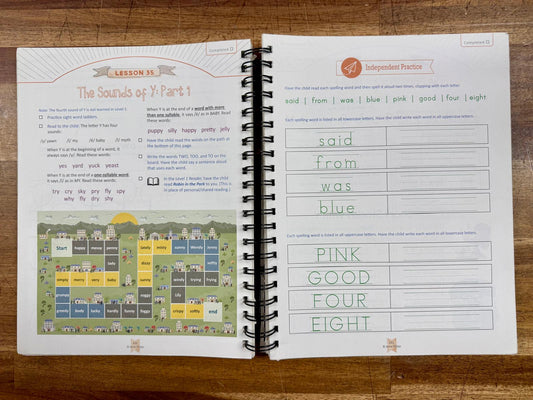 Complete
LESSON 35
The Sounds of Y: Part 1
Note: The fourth sound of Y is not learned in Level 1.
Practice sight word ladders.
Read to the child: The letter Y has four sounds:
/y/ yawn /ī/ my /ē/ baby /ĭ/ myth
When Y is at the beginning of a word, it always says /y/. Read these words:
yes yard yuck yeast
When Y is at the end of a one-syllable word, it says /ī/ as in MY. Read these words:
try cry sky pry fly spy
why fly dry shy
When Y is at the end of a word with more than one syllable, it says /ē/ as in BABY. Read these words:
puppy silly happy pretty jelly
Have the child read the words on the path at the bottom of this page.
Write the words TWO, TOO, and TO on the board. Have the child say a sentence aloud that uses each word.
In the Level 1 Reader, have the child read Robin in the Park to you. (This is a place of personal/shared reading.)
Start happy penny lately misty sunny Wendy Jenny
baby dizzy softly
simply merry very baby sunny windy trying
grumpy foggy lily
greedy body lucky hardly funny foggy crispy softly end
Complete
Independent Practice
Have the child read each spelling word and then spell it aloud two times, clapping with each letter.
said | from | was | blue | pink | good | four | eight
Each spelling word is listed in all lowercase letters. Have the child write each word in all uppercase letters.
said
from
was
blue
Each spelling word is listed in all uppercase letters. Have the child write each word in all lowercase letters.
PINK
GOOD
FOUR
EIGHT